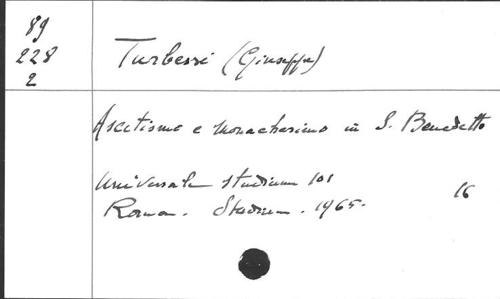 89
228
2
Turbessi (Giuseppe)
Ascetismo e monachesimo in S. Benedetto
Universale studium 101
Roma. Studium. 1965.
16